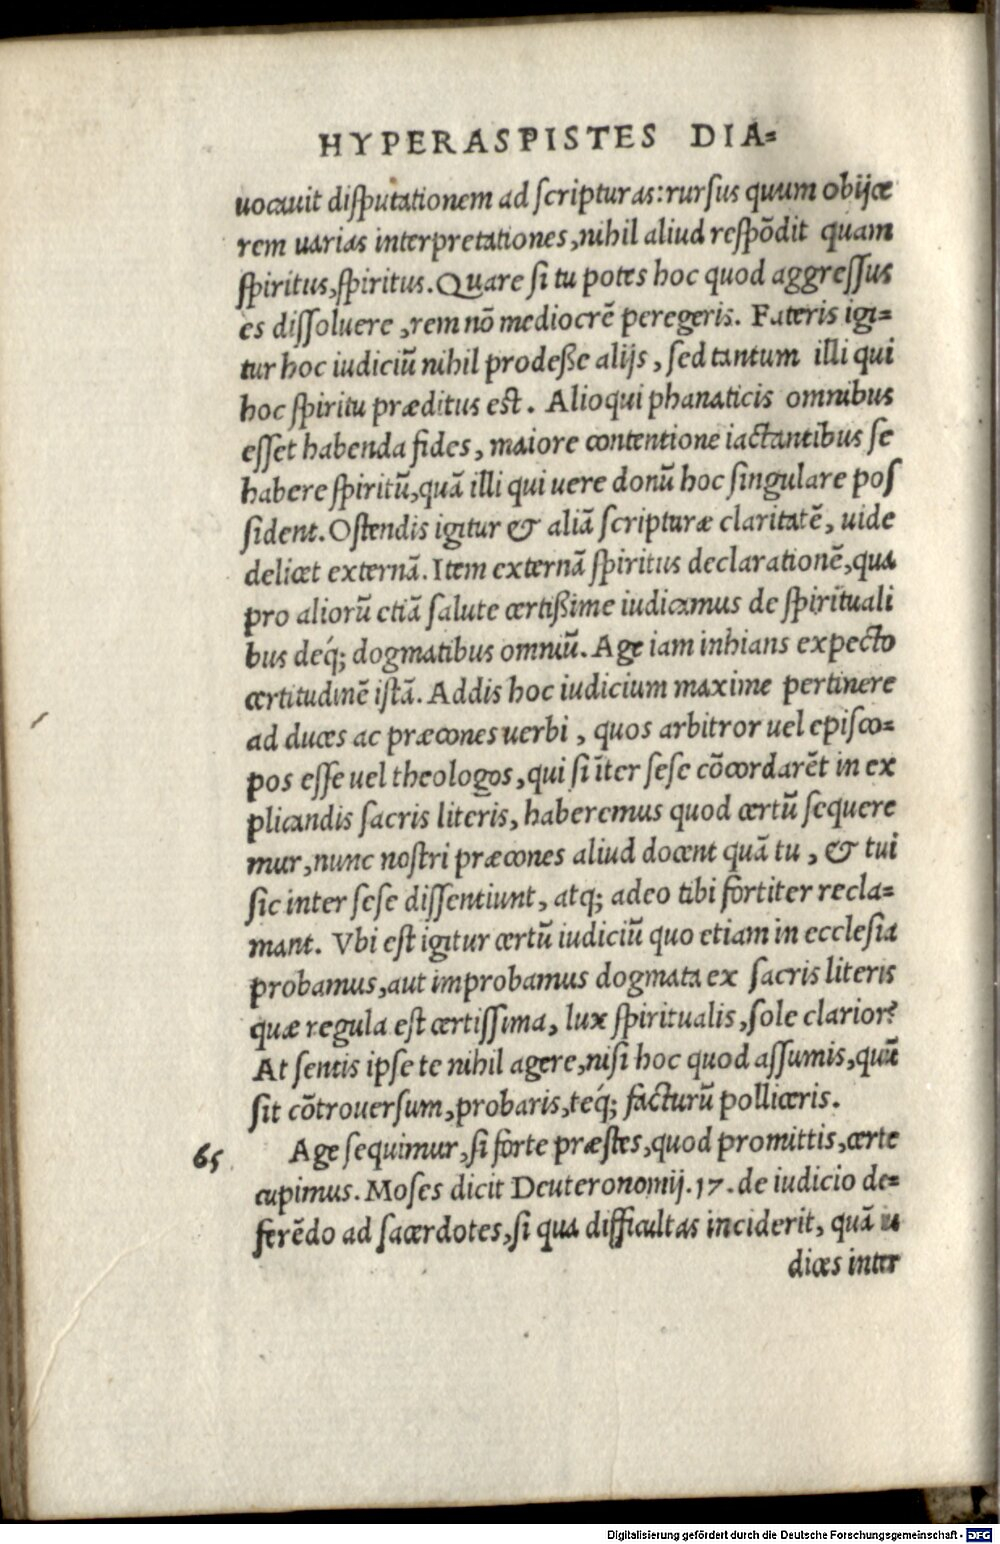 HYPERASPISTES DIA=
uocauit disputationem ad scripturas: rursus quum obijce
rem uarias interpretationes, nihil aliud respõdit quam
spiritus, spiritus. Quare si tu potes hoc quod aggressus
es dissoluere, rem nõ mediocrẽ peregeris. Fateris igi=
tur hoc iudiciũ nihil prodeße alijs, sed tantum illi qui
hoc spiritu præditus est. Alioqui phanaticis omnibus
esset habenda fides, maiore contentione iactantibus se
habere spiritũ, quã illi qui uere donũ hoc singulare pos
sident. Ostendis igitur & aliã scripturæ claritatẽ, uide
delicet externã. Item externã spiritus declarationẽ, qua
pro aliorũ etiã salute certißime iudicamus de spirituali
bus deq́; dogmatibus omniũ. Age iam inhians expecto
certitudinẽ istã. Addis hoc iudicium maxime pertinere
ad duces ac præcones uerbi, quos arbitror uel episco=
pos esse uel theologos, qui si ĩter sese cõcordarẽt in ex
plicandis sacris literis, haberemus quod certũ sequere
mur, nunc nostri præcones aliud docent quã tu, & tui
sic inter sese dissentiunt, atq; adeo tibi fortiter recla=
mant. Vbi est igitur certũ iudiciũ quo etiam in ecclesia
probamus, aut improbamus dogmata ex sacris literis
quæ regula est certissima, lux spiritualis, sole clarior?
At sentis ipse te nihil agere, nisi hoc quod assumis, quũ
sit cõtrouersum, probaris, teq́; facturũ polliceris.
65 Age sequimur, si forte præstes, quod promittis, certe
cupimus. Moses dicit Deuteronomij. 17. de iudicio de=
ferẽdo ad sacerdotes, si qua difficultas inciderit, quã iu
dices inter
Digitalisierung gefördert durch die Deutsche Forschungsgemeinschaft - DFG